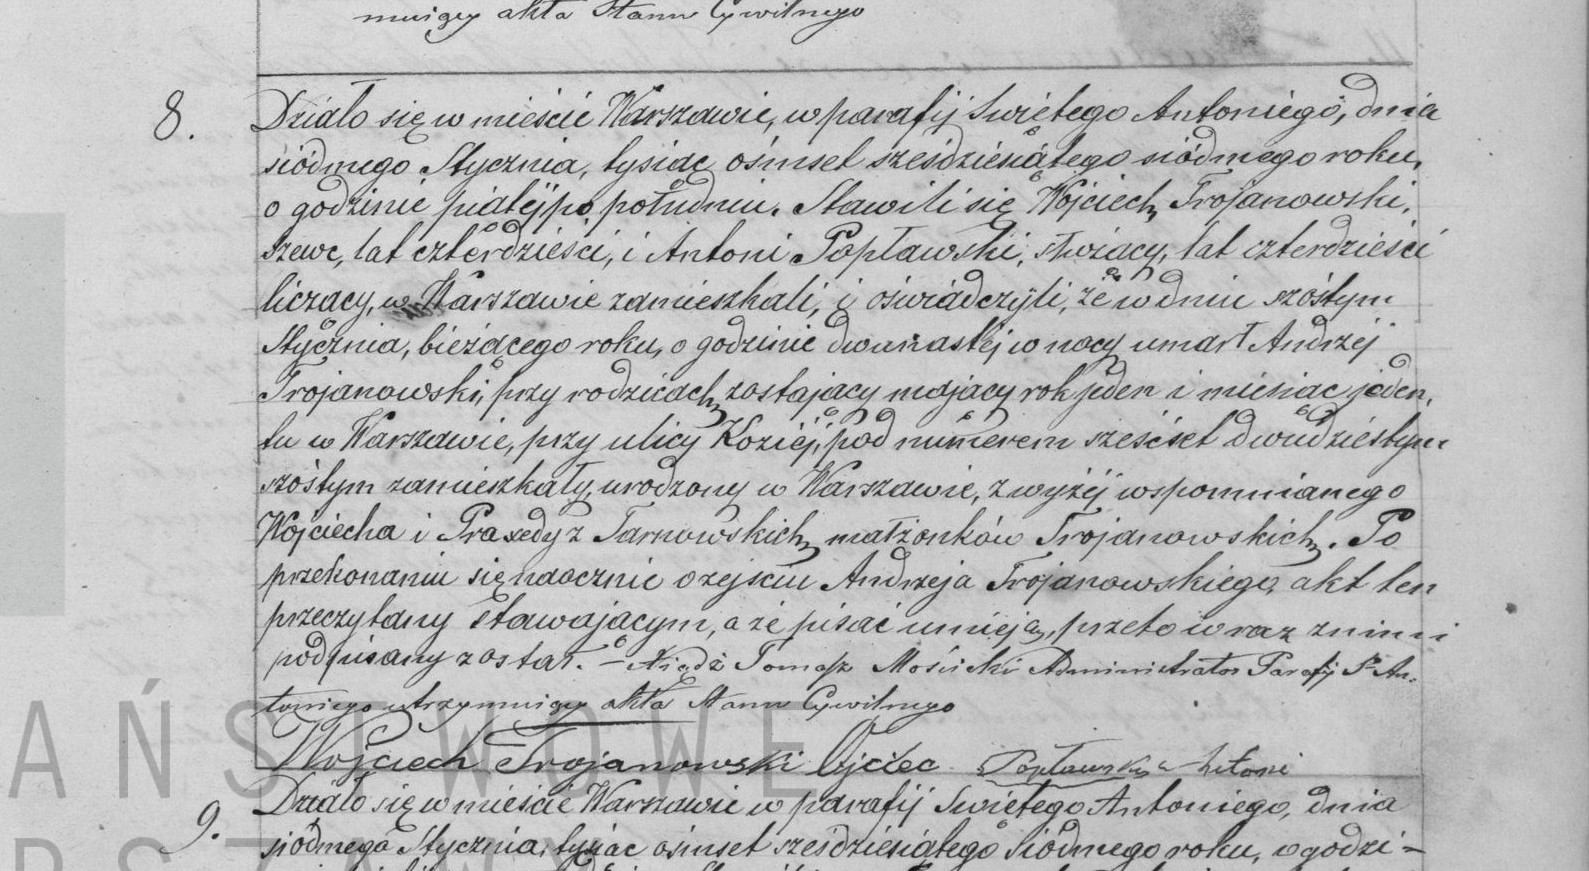 mującÿ akta Stanu Cywilnego
8. Działo się w mieście Warszawie, w parafij Swiętego Antoniego, dnia
siódmego Stycznia, tysiąc ośmset sześdziesiątego siódmego roku,
o godzinie piątéj po południu. Stawili się Wojciech Trojanowski,
szewc, lat czterdzieści, i Antoni Popławski, służący, lat czterdzieści
liczący, w Warszawie zamieszkali, i oświadczyli, że w dniu szóstym
Stycznia, bieżącego roku, o godzinie dwunastéj w nocy umarł Andrzéj
Trojanowski, przy rodzicach zostający mający rok jeden i miesiąc jeden,
tu w Warszawie, przy ulicy Koziéj, pod numerem sześćset dwudziestym
szóstym zamieszkały, urodzony w Warszawie, z wyżéj wspomnianego
Wojciecha i Praxedy z Tarnowskich małżonków Trojanowskich. Po
przekonaniu się naocznie o zejściu Andrzeja Trojanowskiego, akt ten
przeczytany stawającym, a że pisać umieją, przeto wraz z nimi
podpisany został. – Ksiądz Tomasz Mościcki Administrator Parafij Sº An-
toniego utrzymujący akta Stanu Cywilnego
Wojciech Trojanowski Ojciec Popławsky Antoni
9. Działo się w mieście Warszawie w parafij Swiętego Antoniego, dnia
siódmego Stycznia, tysiąc ośmset sześdziesiątego siódmego roku, o godzi-
AŃSTWOWE